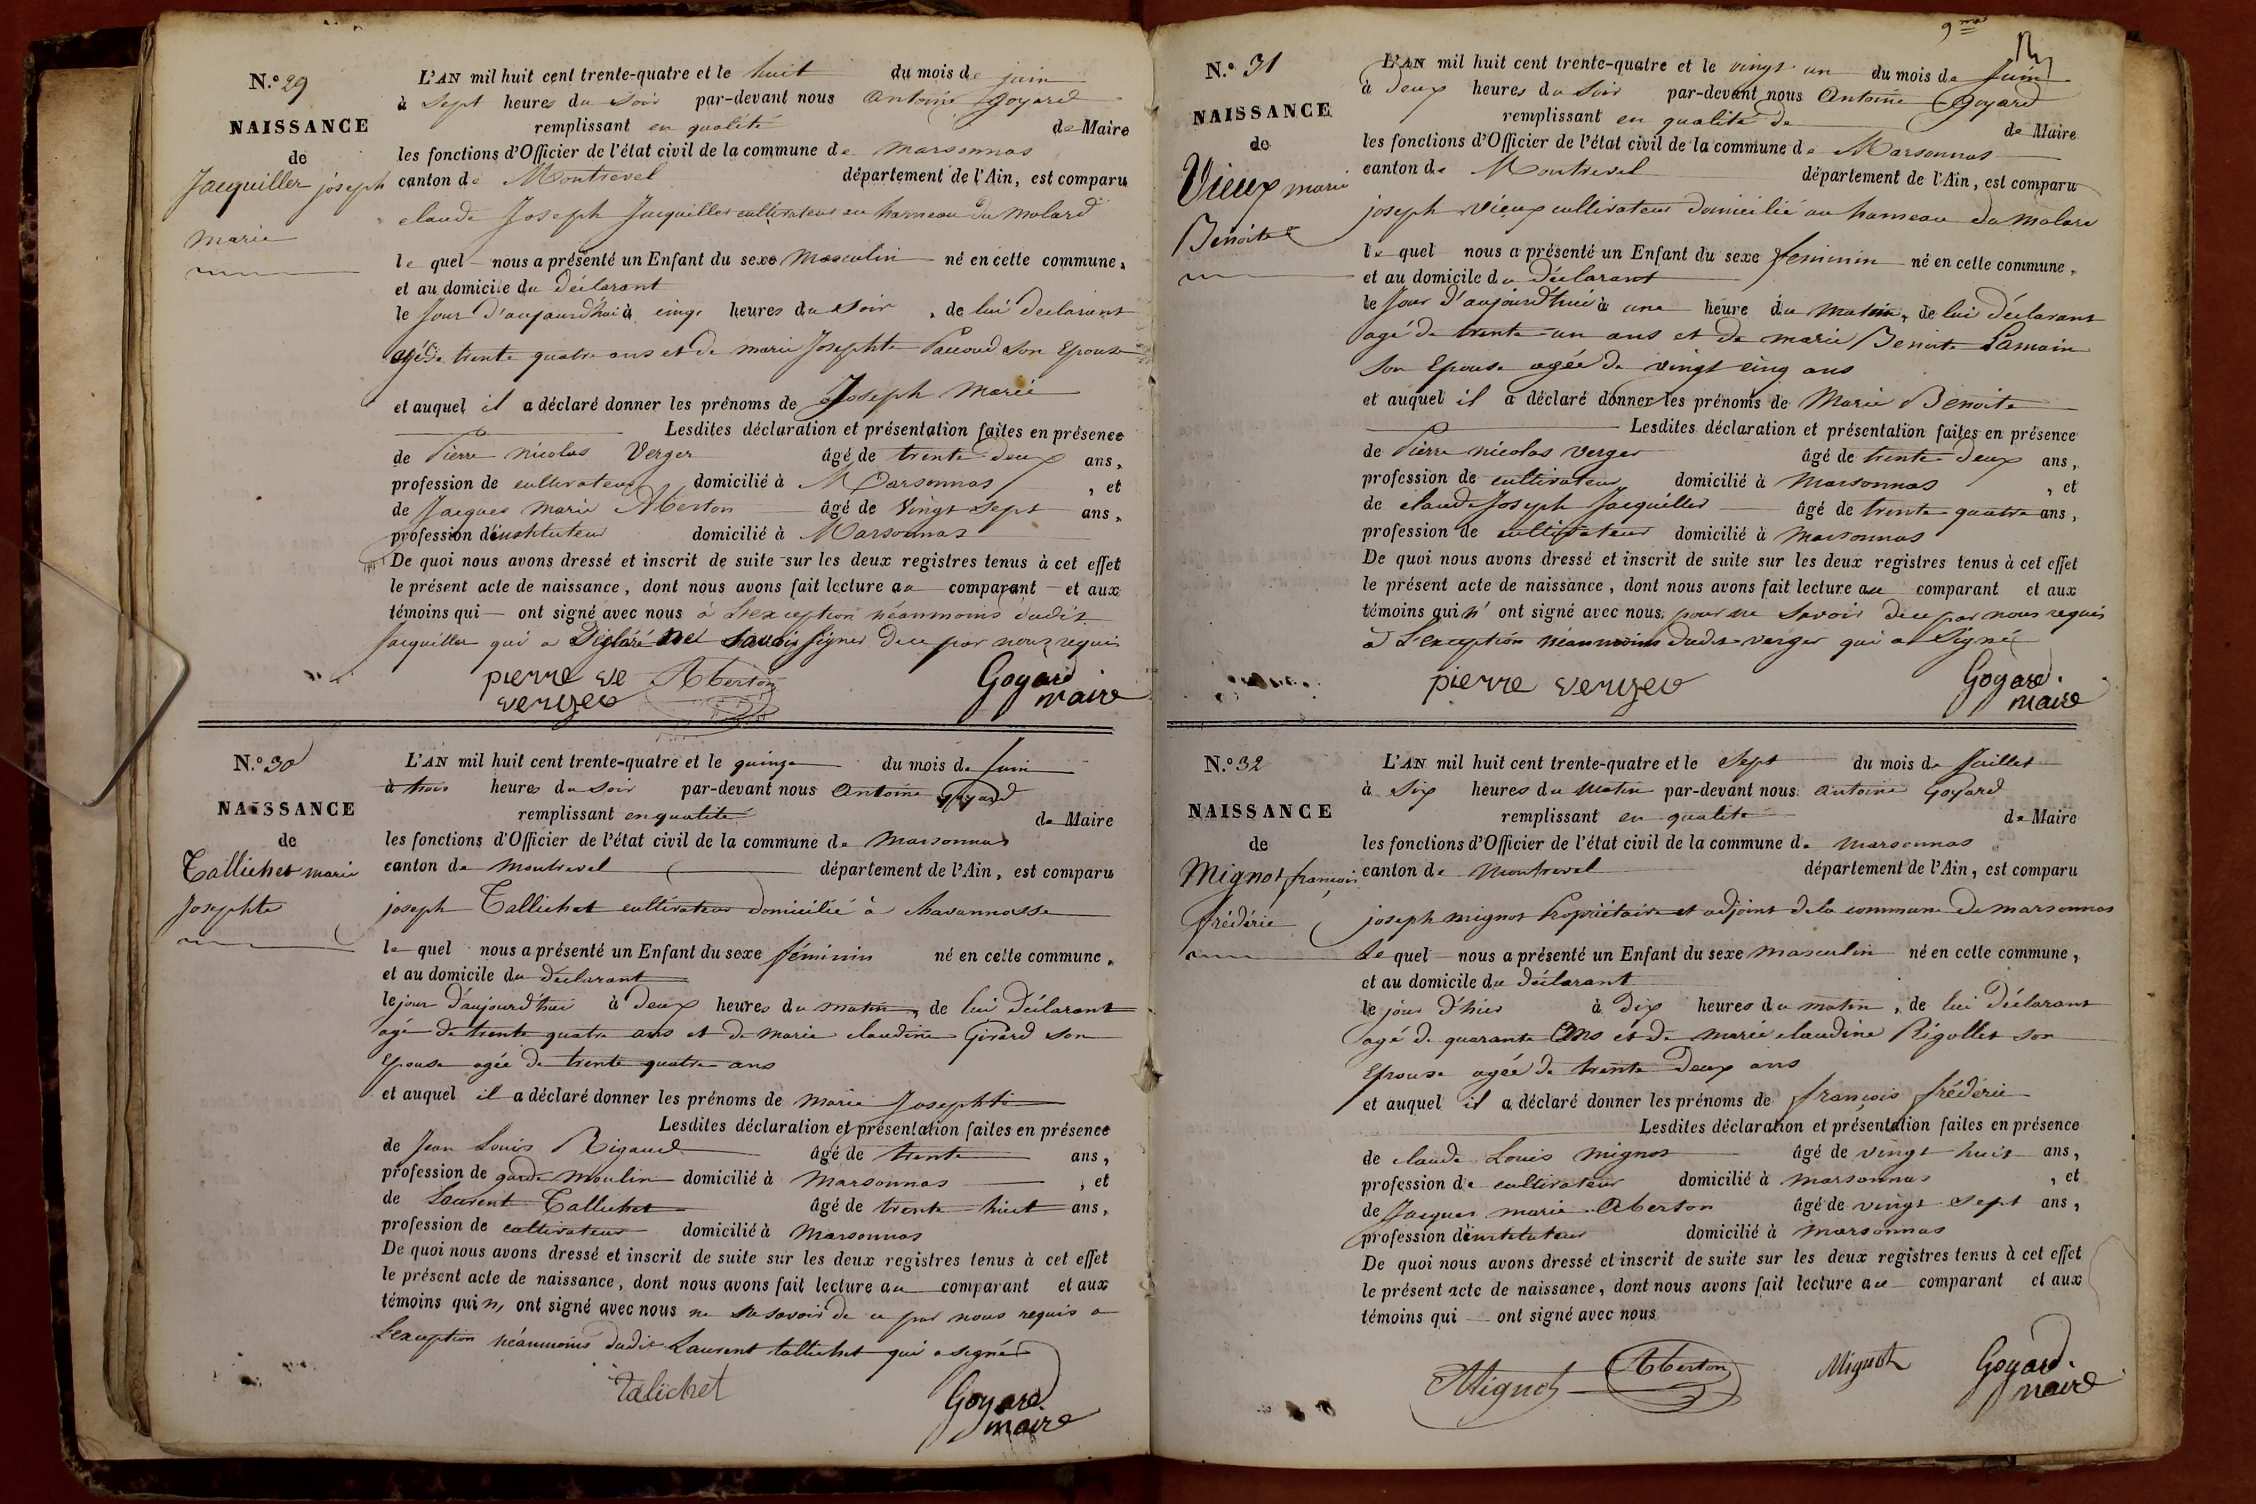 N.o 29
NAISSANCE
de
Jacquiller joseph
marie
L'AN mil huit cent trente-quatre et le huit du mois de juin
à sept heures du soir par-devant nous antoine Goyard
remplissant en qualité de Maire
les fonctions d'Officier de l'état civil de la commune de marsonnas
canton de Montrevel département de l'Ain, est comparu
claude Joseph Jacquiller cultivateur au hameau du molard
le quel nous a présenté un Enfant du sexe Masculin né en cette commune,
et au domicile du déclarant
le Jour d'aujourd'hui à cinq heures du soir, de lui déclarant
agé de trente quatre ans et de marie Josephte Pauoud son Epouse
et auquel il a déclaré donner les prénoms de Joseph Marie
Lesdites déclaration et présentation faites en présence
de Pierre nicolas Verger âgé de trente deux ans,
profession de cultivateur domicilié à Marsonnas, et
de Jacques marie Aberton âgé de Vingt sept ans,
profession d'instituteur domicilié à Marsonnas
De quoi nous avons dressé et inscrit de suite sur les deux registres tenus à cet effet
le présent acte de naissance, dont nous avons fait lecture au comparant et aux
témoins qui ont signé avec nous à L'exception néanmoins dudit
Jacquiller qui a Déclaré ne savoir signer De ce par nous requis
pierre ve Aberton Goyard
verger maire
N.o 30
NAISSANCE
de
Tallichet marie
Josephte
L'AN mil huit cent trente-quatre et le quinze du mois de Juin
à trois heures du soir par-devant nous antoine goyard
remplissant en qualité de Maire
les fonctions d'Officier de l'état civil de la commune de marsonnas
canton de montrevel département de l'Ain, est comparu
joseph Tallichet cultivateur domicilié à chavannosse
le quel nous a présenté un Enfant du sexe féminin né en cette commune,
et au domicile du déclarant
le jour d'aujourd'hui à deux heures du matin, de lui déclarant
agé de trente quatre ans et de marie claudine Girard son
Epouse agée de trente quatre ans
et auquel il a déclaré donner les prénoms de marie Josephte
Lesdites déclaration et présentation faites en présence
de Jean Louis Rigaud âgé de trente ans,
profession de garde moulin domicilié à marsonnas, et
de Laurent Tallichet âgé de trente huit ans,
profession de cultivateur domicilié à Marsonnas
De quoi nous avons dressé et inscrit de suite sur les deux registres tenus à cet effet
le présent acte de naissance, dont nous avons fait lecture au comparant et aux
témoins qui n' ont signé avec nous ne savoir de ce par nous requis a
L'exception néanmoins dudit Laurent tallichet qui a signé
talichet Goyard
maire
9me
N.o 31
NAISSANCE
de
Vieux marie
Benoite
L'AN mil huit cent trente-quatre et le vingt un du mois de Juin
à deux heures du soir par-devant nous antoine Goyard
remplissant en qualité de de Maire
les fonctions d'Officier de l'état civil de la commune de Marsonnas
canton de Montrevel département de l'Ain, est comparu
joseph vieux cultivateur domicilié au hameau du molard
le quel nous a présenté un Enfant du sexe féminin né en cette commune,
et au domicile du déclarant
le Jour d'aujourd'hui à une heure du matin, de lui déclarant
agé de trente un ans et de marie Benoite Lamain
son Epouse agée de vingt cinq ans
et auquel il a déclaré donner les prénoms de Marie Benoite
Lesdites déclaration et présentation faites en présence
de Pierre nicolas verger âgé de trente deux ans,
profession de cultivateur domicilié à marsonnas, et
de claude Joseph Jacquiller âgé de trente quatre ans,
profession de cultivateur domicilié à marsonnas
De quoi nous avons dressé et inscrit de suite sur les deux registres tenus à cet effet
le présent acte de naissance, dont nous avons fait lecture au comparant et aux
témoins qui n' ont signé avec nous pour ne savoir de ce par nous requis
à L'exception néanmoins dudit verger qui a signé
pierre verger Goyard
maire
N.o 32
NAISSANCE
de
Mignot françois
frédéric
L'AN mil huit cent trente-quatre et le sept du mois de Juillet
à six heures du matin par-devant nous antoine Goyard
remplissant en qualité de Maire
les fonctions d'Officier de l'état civil de la commune de marsonnas
canton de Montrevel département de l'Ain, est comparu
joseph mignot Propriétaire et adjoint de la commune de marsonnas
Le quel nous a présenté un Enfant du sexe masculin né en cette commune,
et au domicile du déclarant
le jour d'hier à dix heures du matin, de lui déclarant
agé de quarante ans et de marie claudine Rigollet son
Epouse agée de trente deux ans
et auquel il a déclaré donner les prénoms de françois frédéric
Lesdites déclaration et présentation faites en présence
de claude Louis mignot âgé de vingt huit ans,
profession de cultivateur domicilié à marsonnas, et
de Jacques marie Aberton âgé de vingt sept ans,
profession d'instituteur domicilié à marsonnas
De quoi nous avons dressé et inscrit de suite sur les deux registres tenus à cet effet
le présent acte de naissance, dont nous avons fait lecture au comparant et aux
témoins qui ont signé avec nous
Mignot Aberton Mignot Goyard
maire